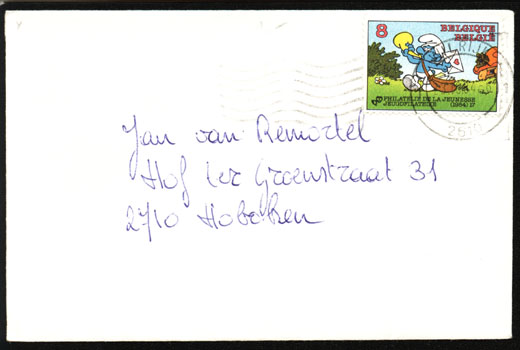 8 BELGIQUE
BELGIË
PHILATELIE DE LA JEUNESSE
JEUGDFILATELIE (1984) 17
2510
Jan van Remortel
Hof ter Groenstraat 31
2710 Hoboken